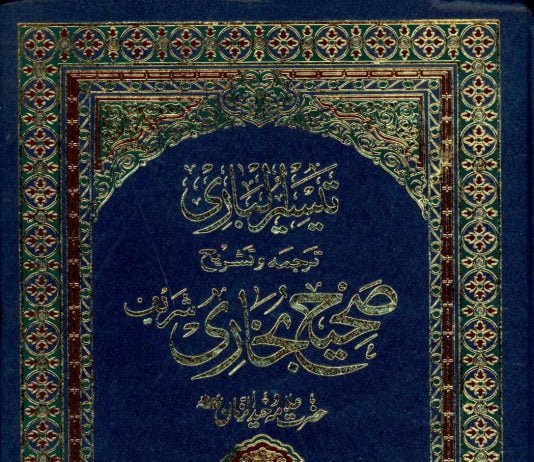 تیسیر الباری
ترجمہ و تشریح
صحیح بخاری شریف
حضرت علامہ وحید الزماں